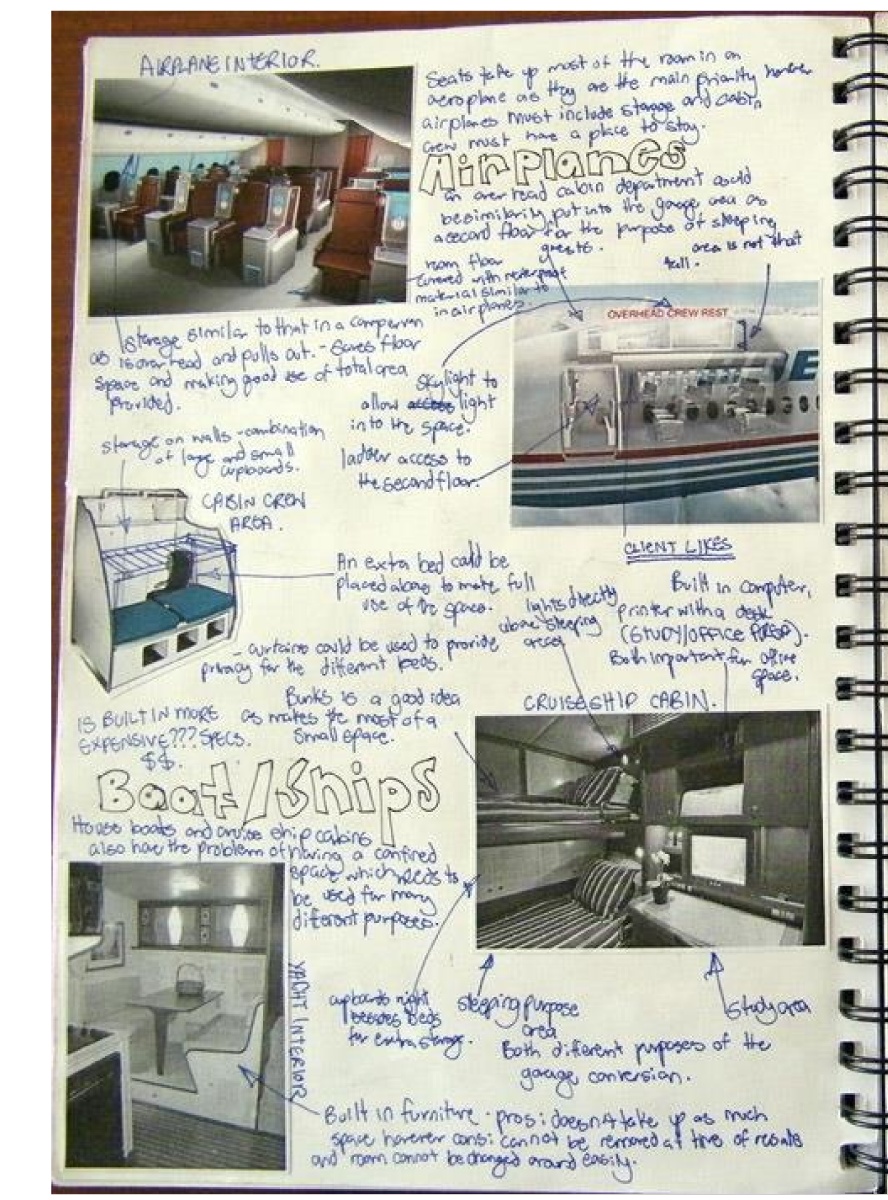 AIRPLANE INTERIOR.
Seats take up most of the room in an
aeroplane as they are the main priority however
airplanes must include storage and cabin
crew must have a place to stay.
Airplanes
an over head cabin department could
be similarily put into the garage area as
a second floor for the purpose of sleeping
guests.
area is not that
tall.
room floor
covered with
material similar to
in airplanes.
OVERHEAD CREW REST
storage similar to that in a campervan
as is over head, and pulls out. - Saves floor
space and making good use of total area
provided.
skylight to
allow light
into the space.
ladder access to
the second floor.
storage on walls - combination
of large and small
cupboards.
CABIN CREW
AREA.
An extra bed could be
placed above to make full
use of the space.
- curtains could be used to provide
privacy for the different beds.
CLIENT LIKES
Built in computer,
printer with a desk
(STUDY/OFFICE AREA).
Both important for office
space.
lights directly
above sleeping
areas
Bunks is a good idea
as makes the most of a
small space.
IS BUILT IN MORE
EXPENSIVE??? SPECS.
$$.
CRUISESHIP CABIN.
Boat/Ships
House boats and cruise ship cabins
also have the problem of having a confined
space which needs to
be used for many
different purposes.
YACHT INTERIOR
cupboards right
besides beds
for extra storage.
sleeping purpose
area
study area
Both different purposes of the
garage conversion.
Built in furniture - pros: doesn't take up as much
space however cons: cannot be removed at time of resale
and room cannot be changed around easily.